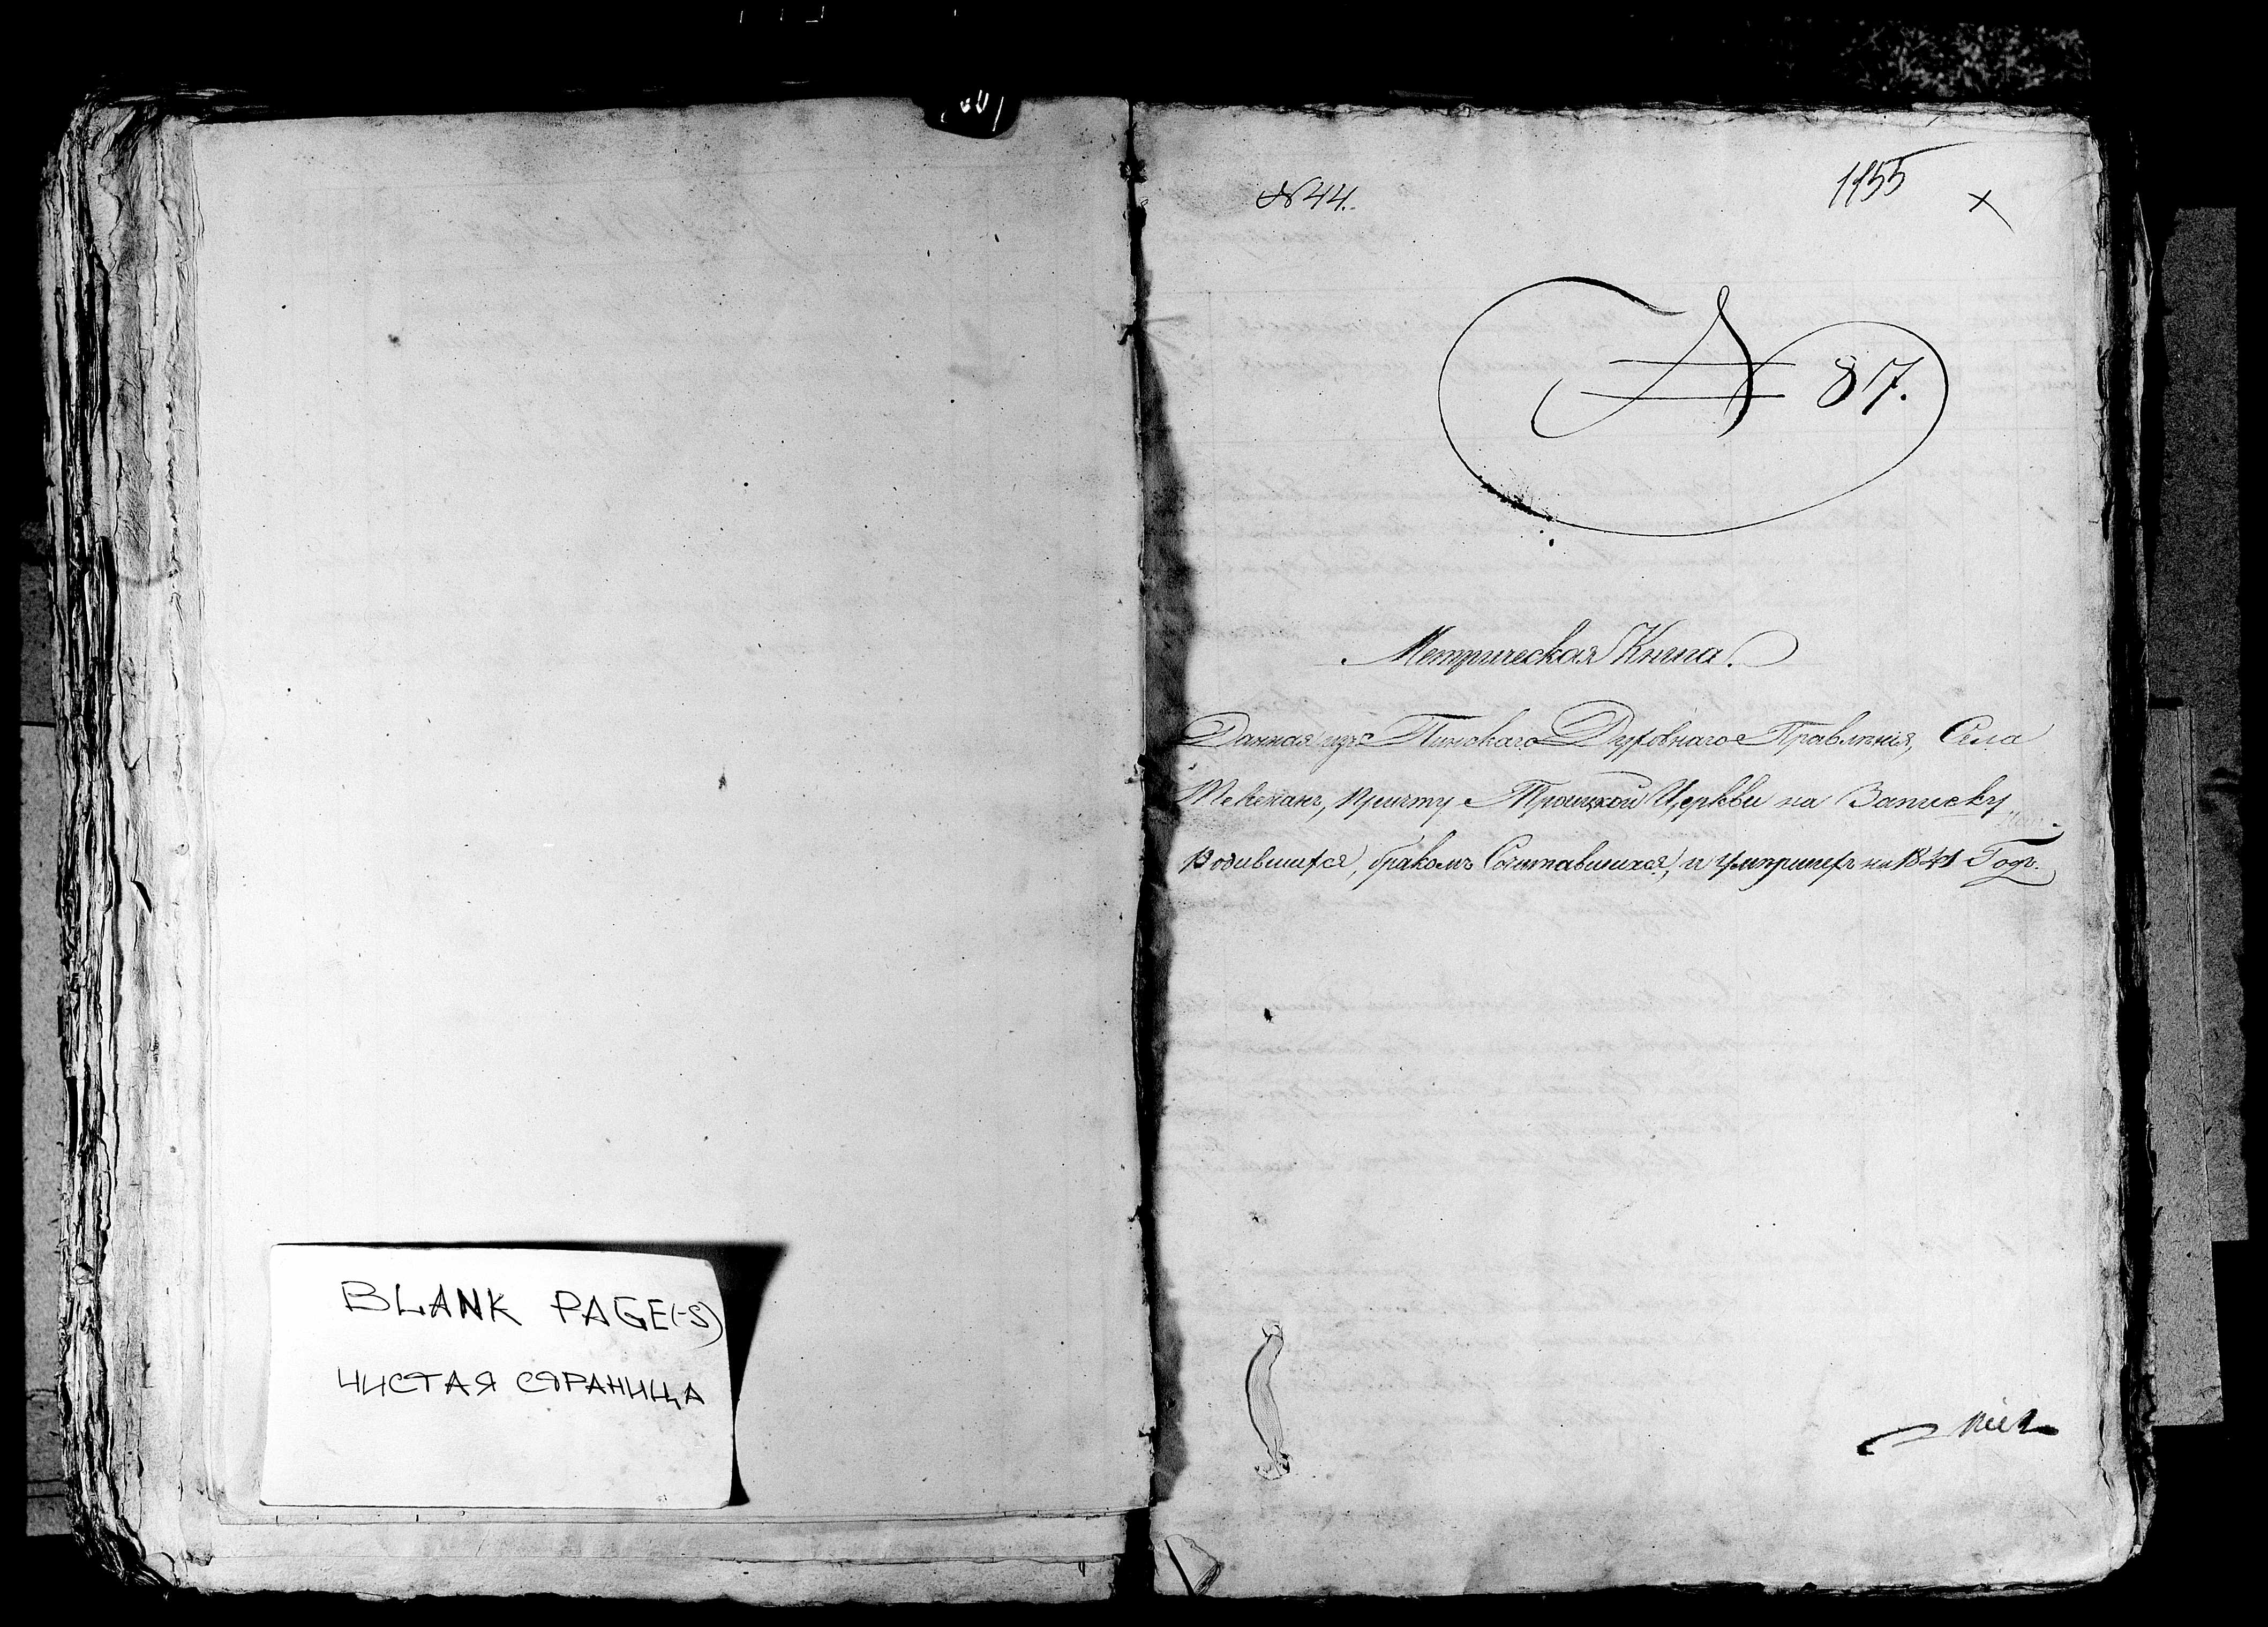 BLANK PAGE(-S)
ЧИСТАЯ СТРАНИЦА
№ 44.
1155
№ 87.
Метрическая Книга.
Данная изъ Пинскаго Духовнаго Правленія, Села
причту Троицкой Церкви на Записку
Родившихся, бракомъ Сочитавшихся, и умершихъ на 1841 Годъ.